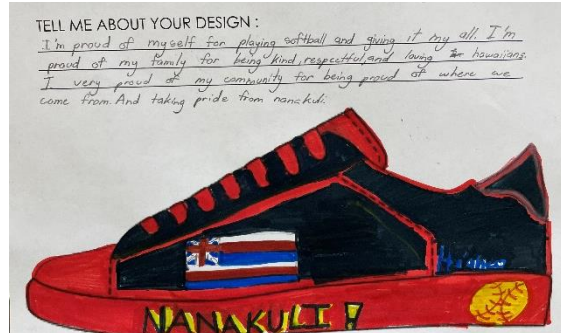 TELL ME ABOUT YOUR DESIGN :
I'm proud of myself for playing softball and giving it my all. I'm
proud of my family for being kind, respectful, and loving hawaiians.
I very proud of my community for being proud of where we
come from. And taking pride from nanakuli.
NANAKULI!